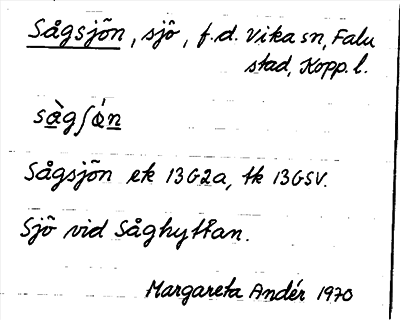 Sågsjön, sjö, f.d. Vika sn, Falu
stad, Kopp. l.
Sågsjön ek 13G2a, tk 13GSV.
Sjö vid Såghyttan.
Margareta Andér 1970